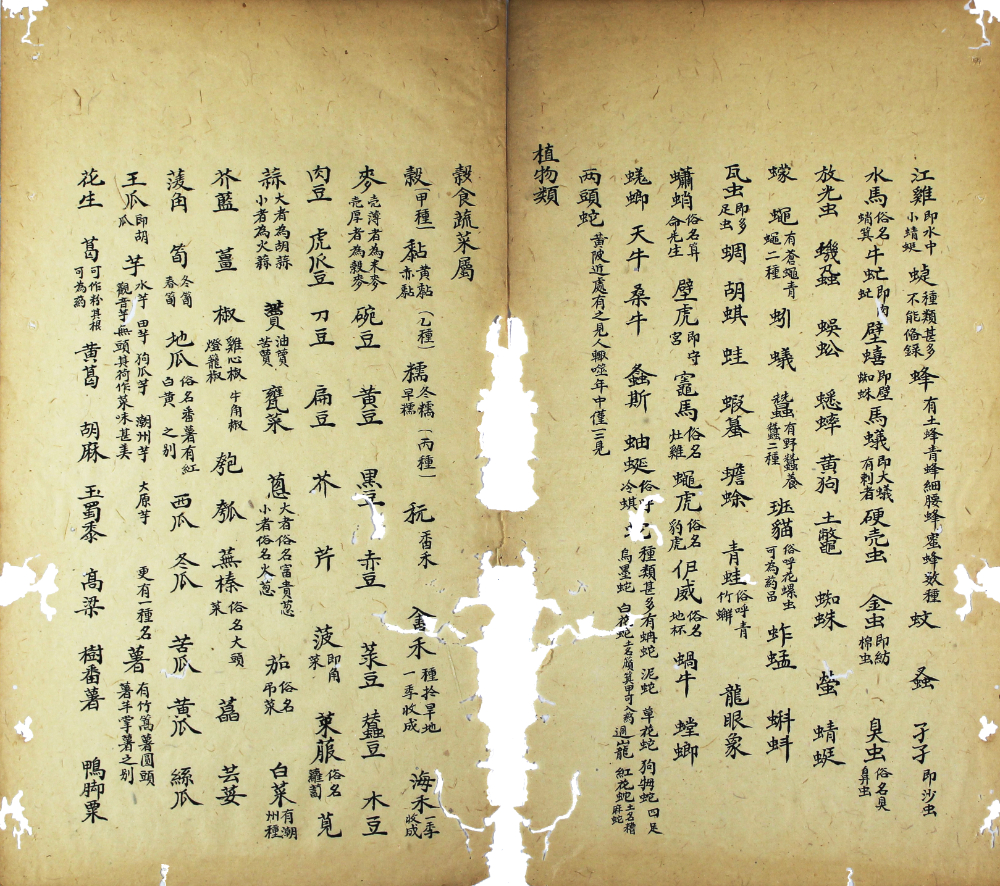 江雞即水中小蜻蜓 蜨種類甚多不能俻録 蜂有土蜂青蜂細腰蜂蜜蜂数種 蚊 蝨 孑孑即沙虫
水馬俗名蛸箕 牛虻即蚊虻 壁蟢即壁蜘蛛 馬蟻即大蟻有刺者 硬壳虫 金虫即紡棉虫 臭虫俗名臭臭虫
放光虫 蟣蝨 蜈蚣 蟋蟀 黄狗 土鼈 蜘蛛 螢 蜻蜓
蠓 蠅有蒼蠅青蠅二種 蚓 蟻 蠶有野蠶養蠶二種 班貓俗呼花螺虫可為葯品 蚱蜢 蝌蚪
瓦虫即多足虫 蜩 胡蜞 蛙 蝦蟇 蟾蜍 青蛙俗呼青竹蠏 龍眼象
蠨蛸俗名算命先生 壁虎即守宮 竈馬俗名灶雞 蠅虎俗名豹虎 伊威俗名地杯 蝸牛 螳螂
蜣螂 天牛 桑牛 螽斯 蚰蜒俗呼冷蜞 種類甚多有蚺蛇 泥蛇 草花蛇 狗拇蛇 四足 烏墨蛇 白花蛇土名願箕甲可入葯 過山龍 紅花蛇土名稽麻蛇
两頭蛇黄陂近處有之見人輙噬年中僅一二見
植物類
穀食蔬菜屬
穀(甲種)黏黄黏赤黏 (乙種)糯冬糯旱糯 (丙種)秔番禾 畬禾種於旱地一季收成 海禾一季收成
麥壳薄者為米麥壳厚者為穀麥 碗豆 黄豆 黑豆 赤豆 菉豆 蠶豆 木豆
肉豆 虎爪豆 刀豆 扁豆 芥 芹 菠即角菜 萊菔俗名蘿蔔 莧
蒜大者為胡蒜小者為火蒜 蕒油蕒苦蕒 甕菜 蔥大者俗名富貴蔥小者俗名火蔥 茄俗名吊菜 白菜有潮州種
芥藍 薑 椒雞心椒牛角椒燈籠椒 匏 瓠 蕪榛俗名大頭菜 藠 芸荽
蔆角 筍冬筍春筍 地瓜俗名番薯有紅白黄之别 西瓜 冬瓜 苦瓜 黄瓜 絲瓜
王瓜即胡瓜 芋水芋 田芋 狗瓜芋 潮州芋 大原芋 更有一種名觀音芋無頭其荷作菜味甚美 薯有竹篙薯圓頭薯羊掌薯之别
花生 葛可作粉其根可為葯 黄葛 胡麻 玉蜀黍 高梁 樹番薯 鴨脚粟